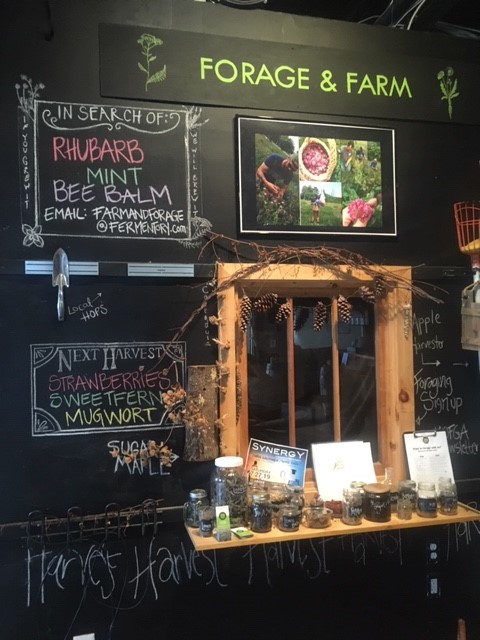 FORAGE & FARM
IF YOU GROW IT
IN SEARCH OF:
RHUBARB
MINT
BEE BALM
EMAIL: FARMANDFORAGE
@FERMENTORY.COM
WE WILL BREW IT
Local
HOPS
Apple
Harvester
Foraging
Sign up
NEXT HARVEST
STRAWBERRIES
SWEETFERN
MUGWORT
SUGAR
MAPLE
SYNERGY
Harvest Harvest Harvest